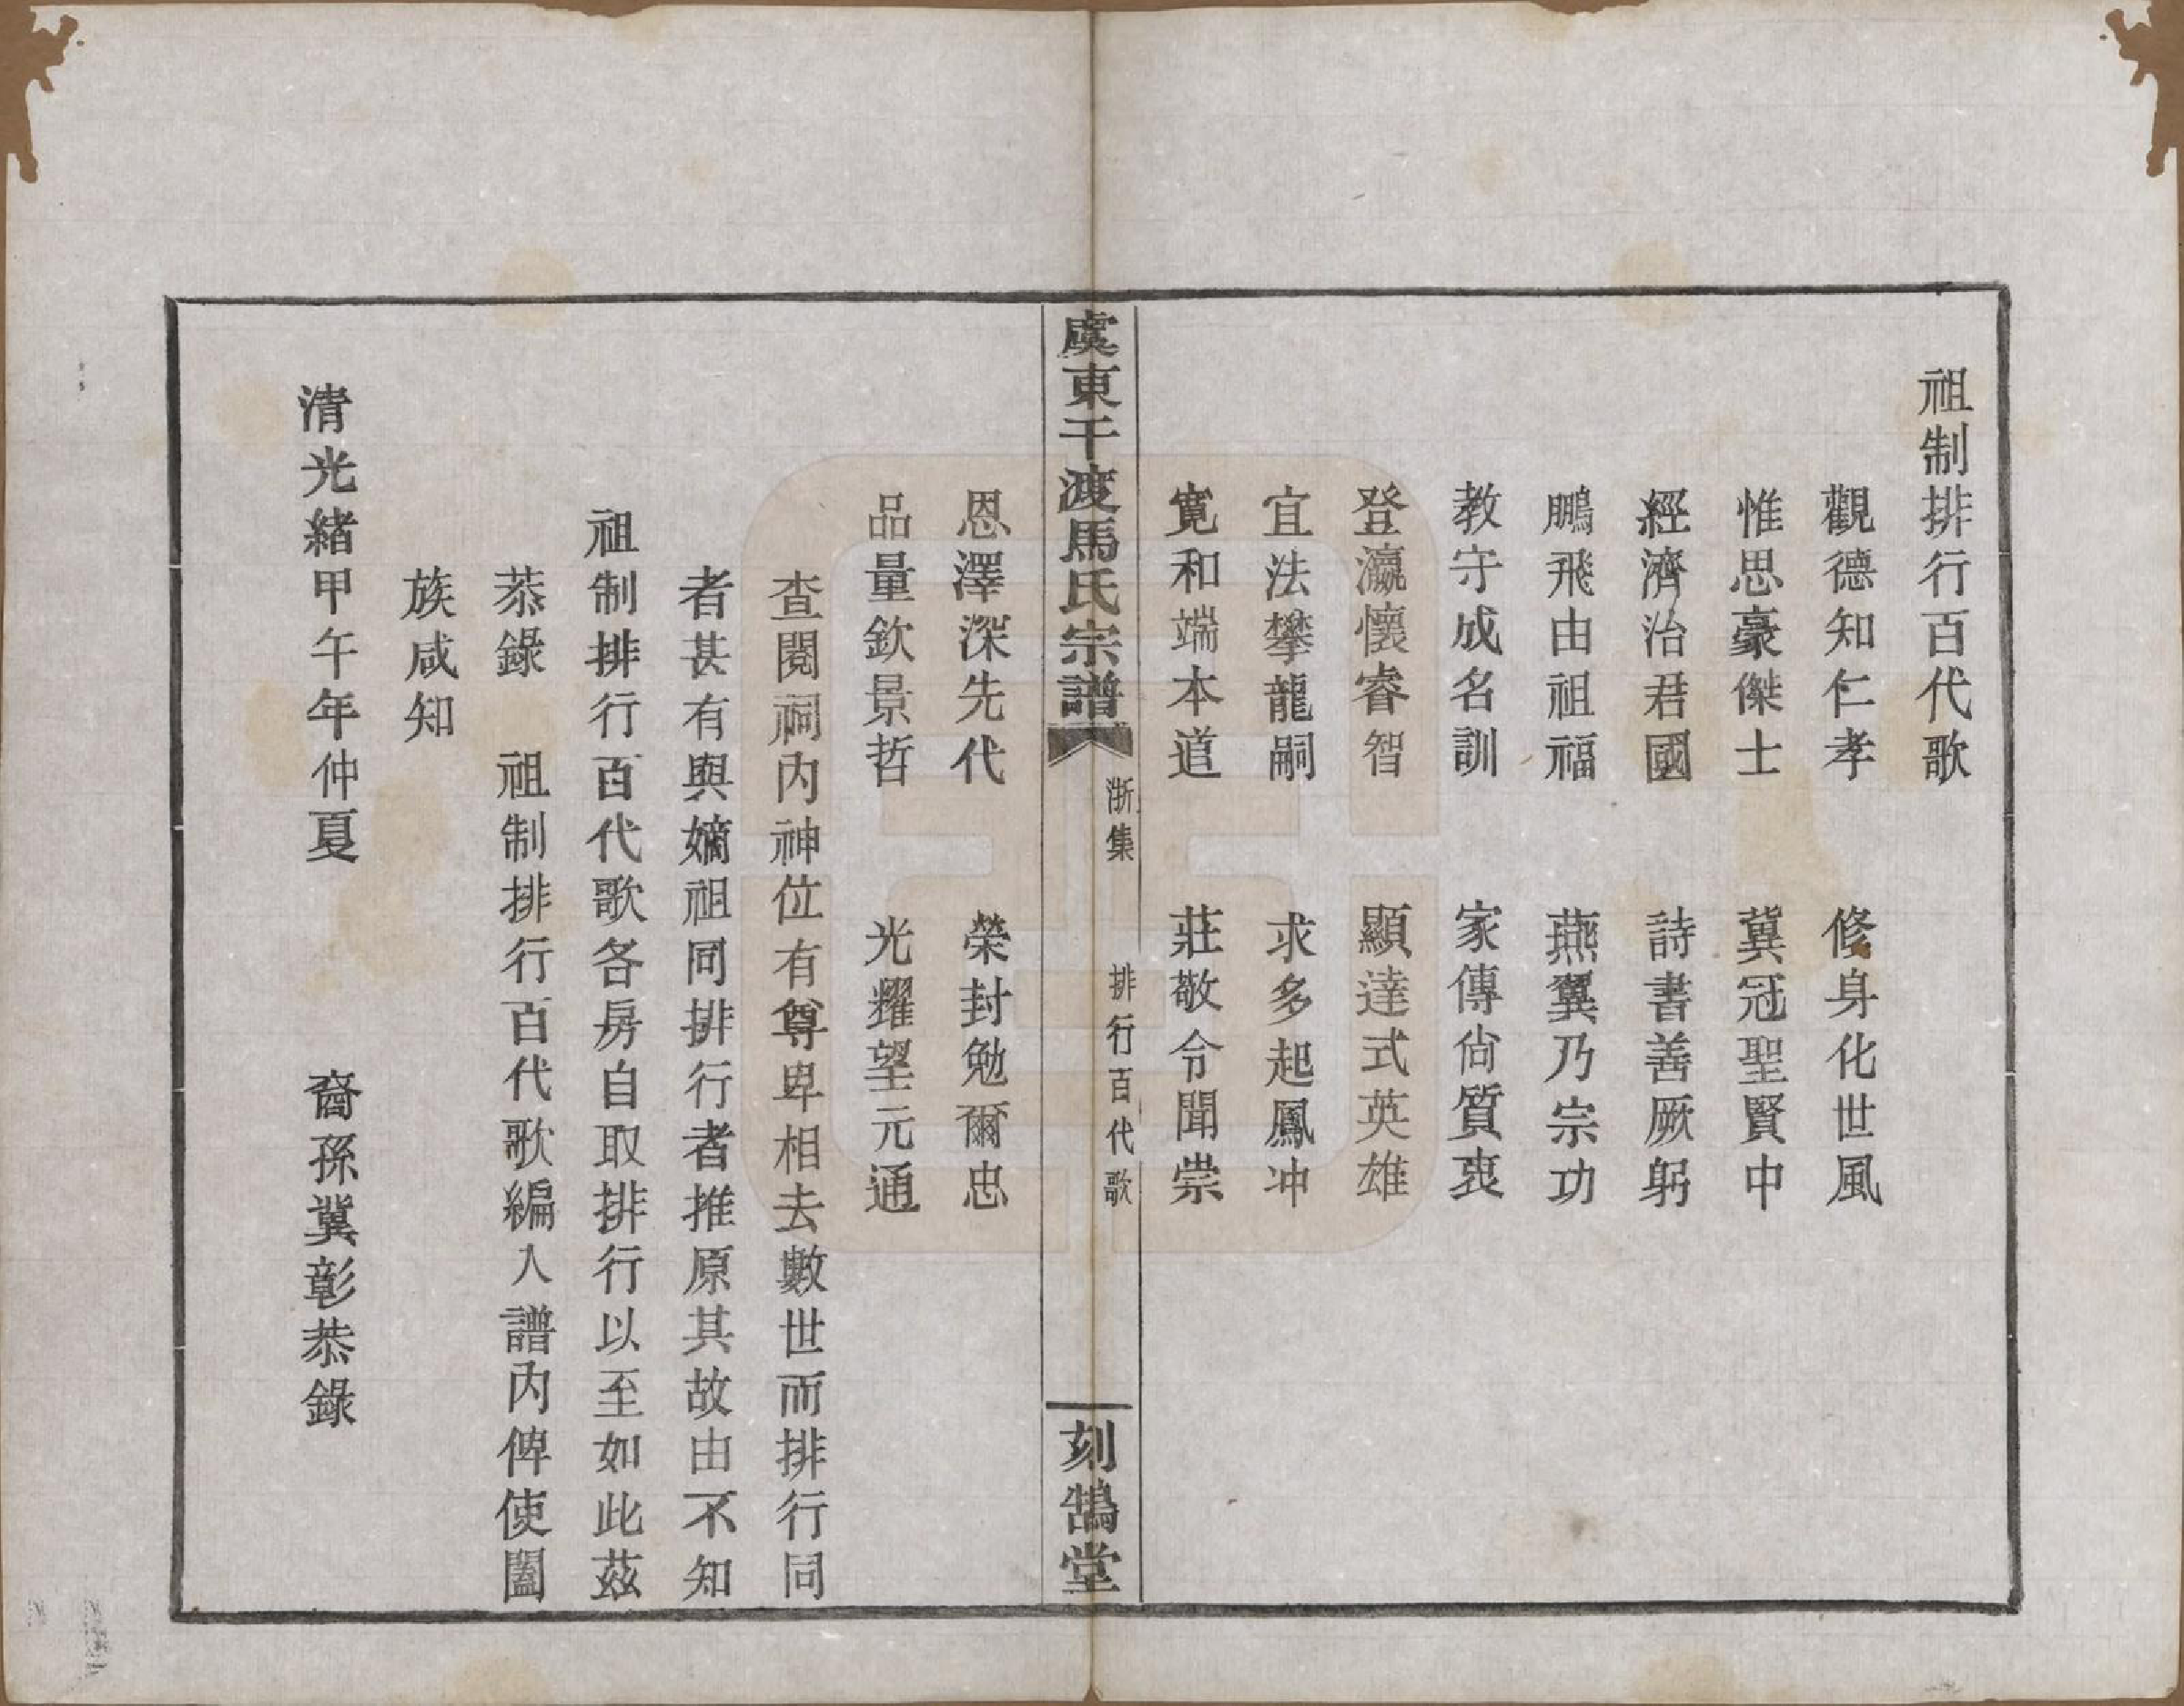 祖制排行百代歌
觀德知仁孝　修身化世風
惟思豪傑士　冀冠聖賢中
經濟治君國　詩書善厥躬
鵬飛由祖福　燕翼乃宗功
教守成名訓　家傳尙質衷
登瀛懷睿智　顯達式英雄
宜法攀龍嗣　求多起鳳冲
寬和端本道　莊敬令聞崇
虞東干渡馬氏宗譜　浙集　排行百代歌　刻鵠堂
恩澤深先代　榮封勉爾忠
品量欽景哲　光耀望元通
查閱祠內神位有尊卑相去數世而排行同
者甚有與嫡祖同排行者推原其故由不知
祖制排行百代歌各房自取排行以至如此茲
恭錄　祖制排行百代歌編入譜內俾使闔
族咸知
清光緒甲午年仲夏　裔孫冀彰恭錄